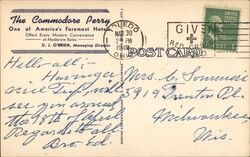 The Commodore Perry
One of America's Foremost Hotels
Offers Every Modern Convenience
at Moderate Rates
D. J. O'BRIEN, Managing Director
TOLEDO
MAR 30
PM
OHIO
GIVE
RED
POST CARD
Hello-all:-
Having a
nice trip will
see you around
the 18th
Regards to all
Bro. Ed.
Mrs. C.
5915 Trenton Pl.
Milwaukee
Wis.